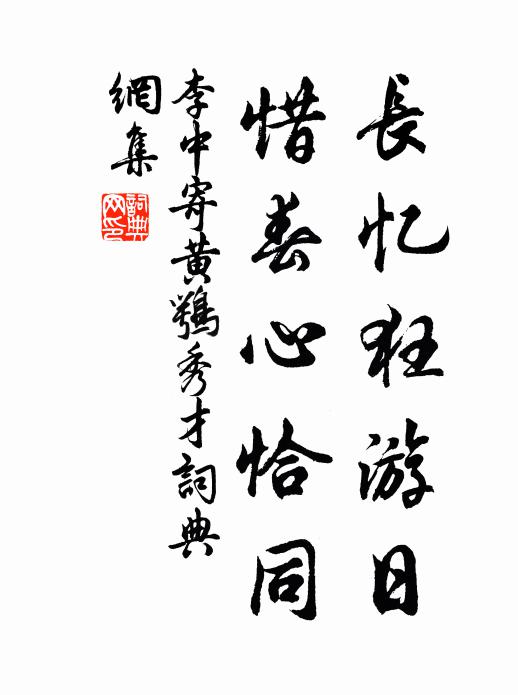 長忆狂游日
惜春心恰同
李中寄黄鶚秀才詞典
網集
詞典
网印